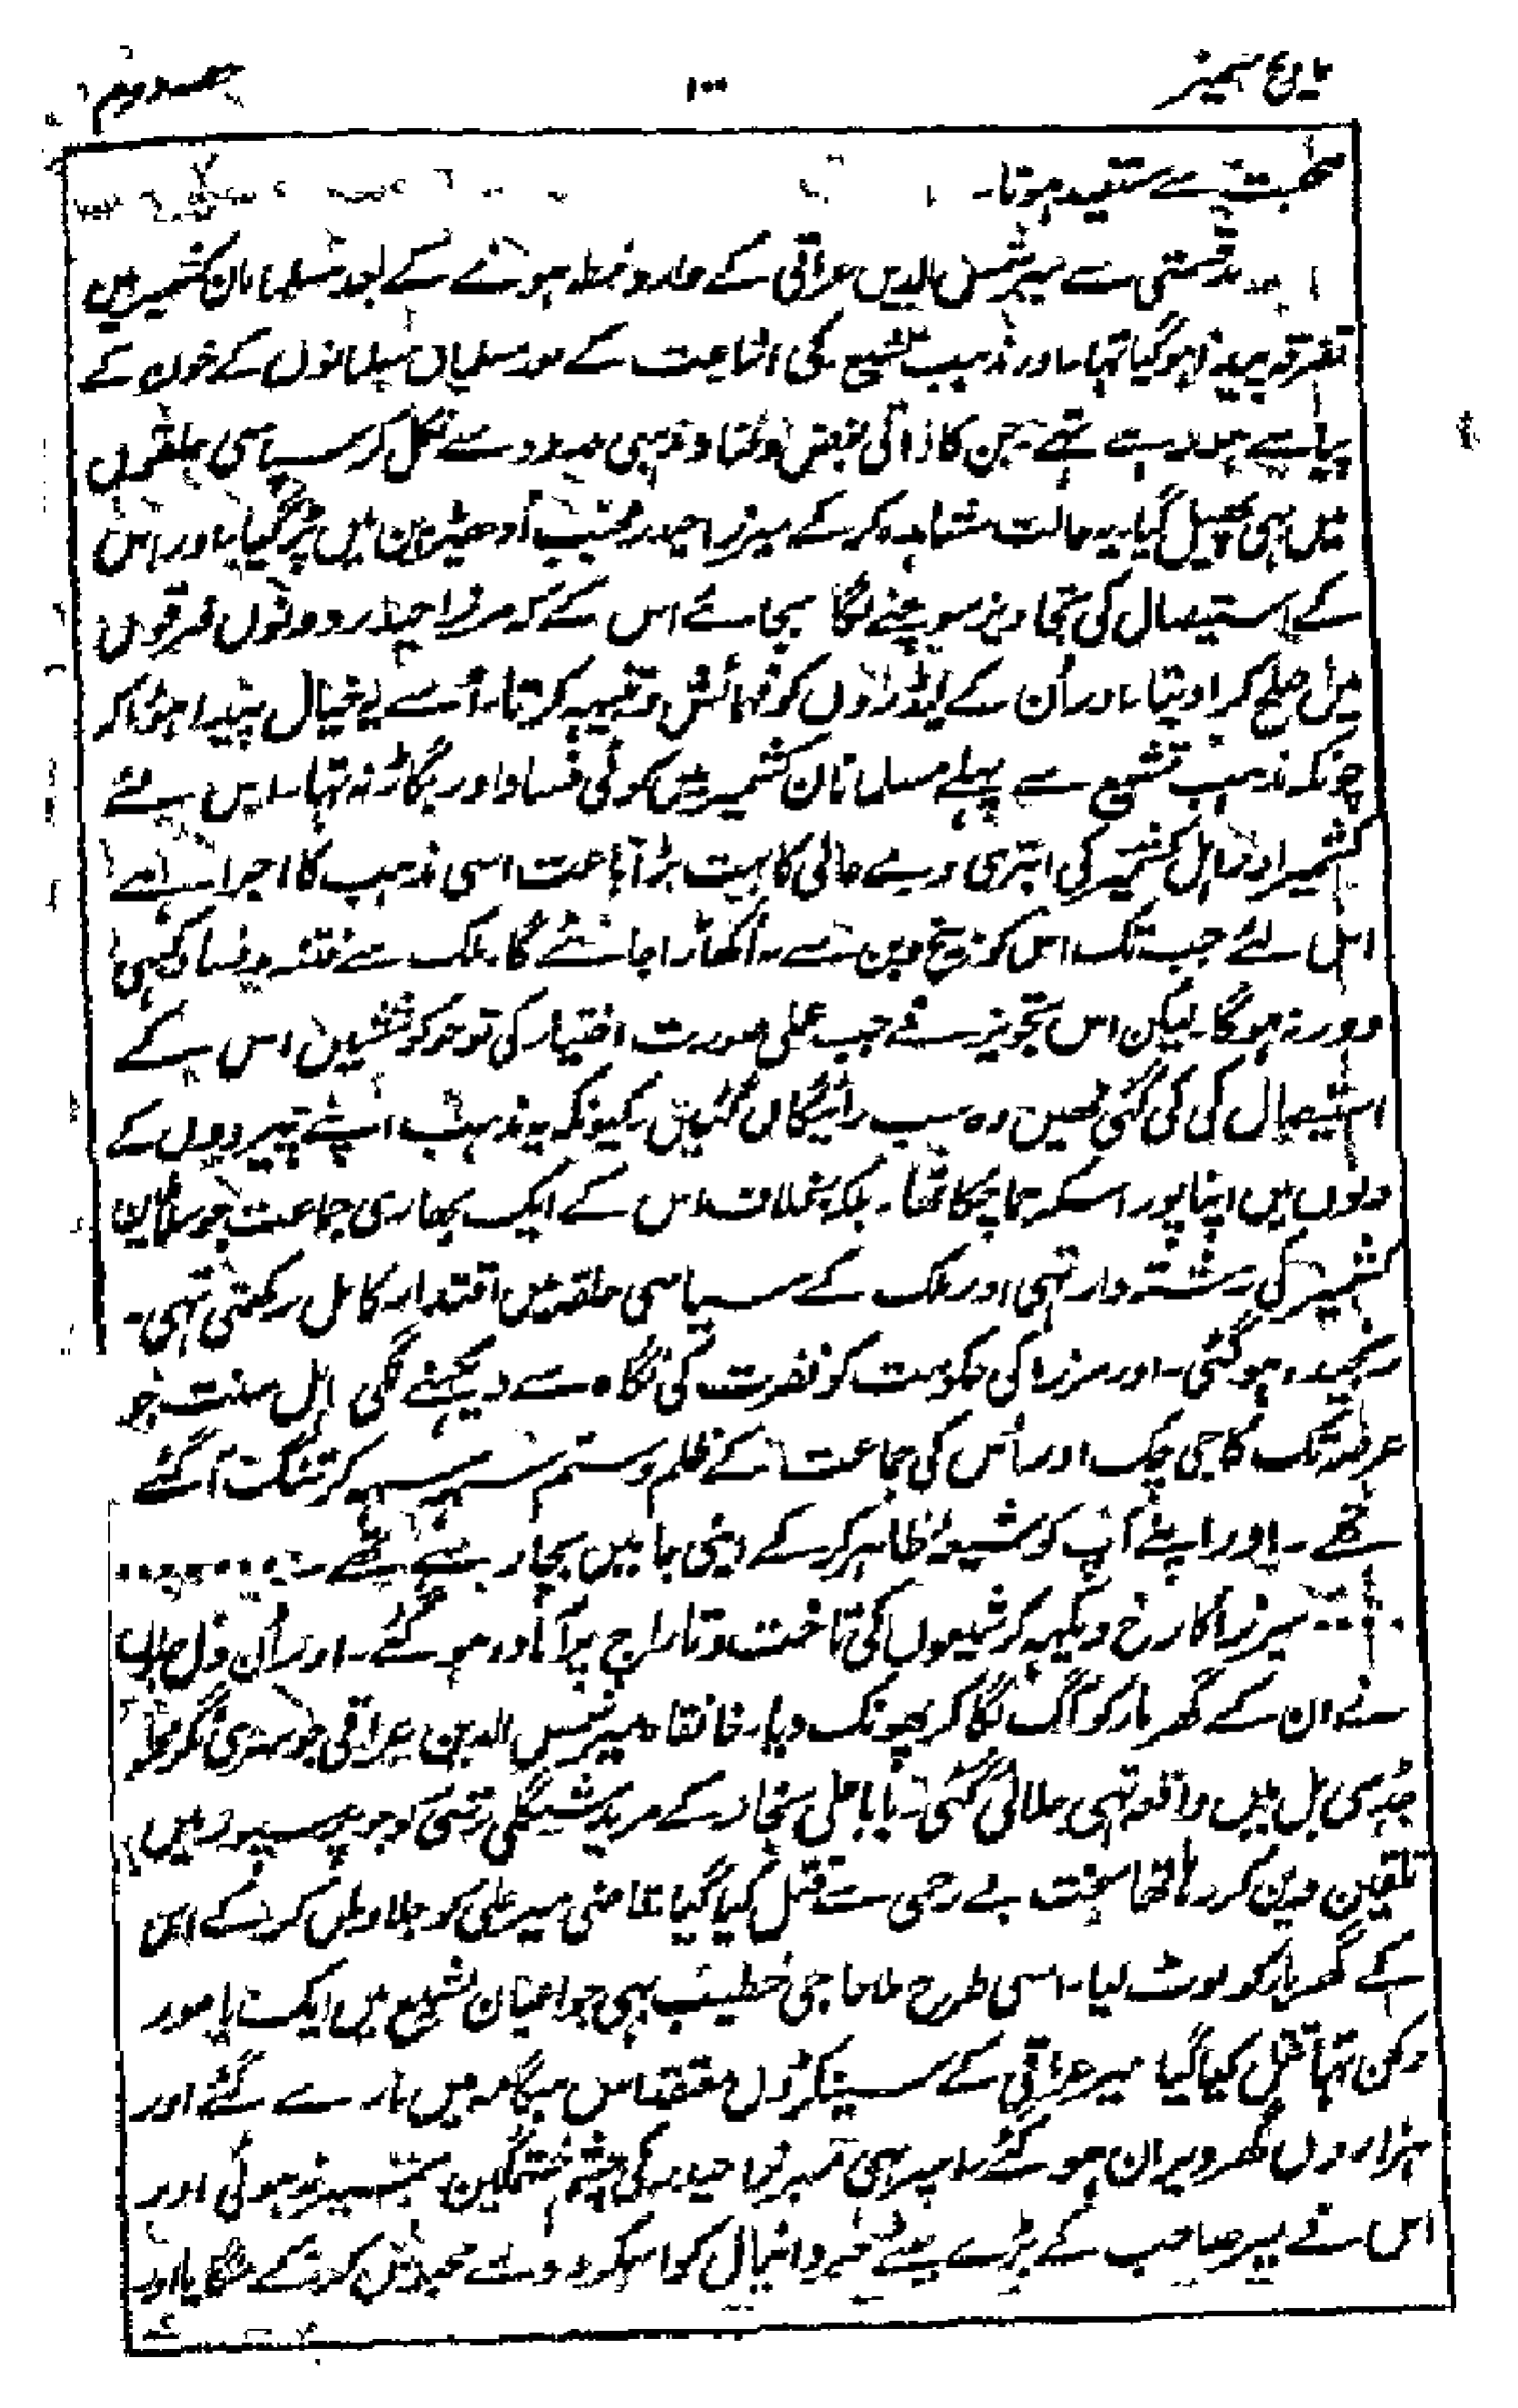 تاریخ کشمیر ۱۰۰ حصہ دوم
صحبت سے مستفید ہوتا۔
بدقسمتی سے میر شمس الدین عراقی کے وارد خطہ ہونے کے بعد مسلمانان کشمیر میں
تفرقہ پیدا ہوگیا تہا۔ اور مذہب تشیع کی اشاعت کے بعد مسلمان مسلمانوں کے خون کے
پیاسے ہو رہے تہے جن کا ذاتی بغض و عناد مذہبی حدود سے نکل کر سیاسی حلقوں
میں بہی پھیل گیا۔ یہ حالت مشاہدہ کر کے میرزا حیدر عجب اُدھیڑبن میں پڑگیا۔ اور اس
کے استیصال کی تجاویز سوچنے لگا بجائے اس کے کہ مرزا حیدر دونوں فرقوں
میں صلح کرا دیتا۔ اور اُن کے لیڈروں کو فہمائش و تنبیہ کرتا۔ اُسے یہ خیال پیدا ہوا کہ
چونکہ مذہب تشیع سے پہلے مسلمانان کشمیر میں کوئی فساد اور بگاڑ نہ تہا۔ اس لئے
کشمیر اور اہل کشمیر کی ابتری و بے حالی کا بہت بڑا باعث اسی مذہب کا اجرا ہے
اس لئے جب تک اس کو بیخ و بن سے نہ اُکھاڑا جائے گا۔ ملک سے فتنہ و فساد کبہی
دور نہ ہوگا۔ لیکن اس تجویز نے جب عملی صورت اختیار کی تو جو کوششیں اس کے
استیصال کی کی گئی تھیں وہ سب رائیگاں گئیں۔ کیونکہ یہ مذہب اپنے پیرووں کے
دلوں میں اپنا پورا سکہ جما چکا تھا۔ بلکہ بخلاف اس کے ایک بھاری جماعت جو سلاطین
کشمیر کی رشتہ دار تہی اور ملک کے سیاسی حلقہ میں اقتدار کامل رکھتی تہی۔
رنجیدہ ہوگئی۔ اور مرزا کی حکومت کو نفرت کی نگاہ سے دیکہنے لگی اہل سنت جو
عرصہ تک کاجی چک اور اُس کی جماعت کے ظلم و ستم سہہ سہہ کر تنگ آ گئے
تھے۔ اور اپنے آپ کو شیعہ ظاہر کر کے اپنی جانیں بچا رہے تھے۔ ........
.... میرزا کا رخ دیکہہ کر شیعوں کی تاخت و تاراج پر آمادہ ہوگئے۔ اور اُن دل جلوں
نے ان کے گھر بار کو آگ لگا کر پھونک دیا۔ خانقاہ میر شمس الدین عراقی جو سری نگر محلہ
جڈی بل میں واقعہ تہی جلائی گئی۔ بابا علی نجار کے مرید شیگلی رشی کو جو میں
تلقین دین کر رہا تھا سخت بے رحمی سے قتل کیا گیا قاضی میر علی کو جلا وطن کر کے اس
کے گھر بار کو لوٹ لیا۔ اسی طرح ملا حاجی خطیب بہی جو اعیان تشیع میں ایک نامور
رکن تہا قتل کیا گیا میر عراقی کے سینکڑوں معتقد اس ہنگامہ میں مارے گئے اور
ہزاروں گھر ویران ہوگئے۔ اپر بہی میرزا حیدر کی چشم خشمگین سیر نہ ہوئی اور
اس نے میر صاحب کے بڑے بیٹے میر دانیال کو اسکردو سے کر کے منگایا اور